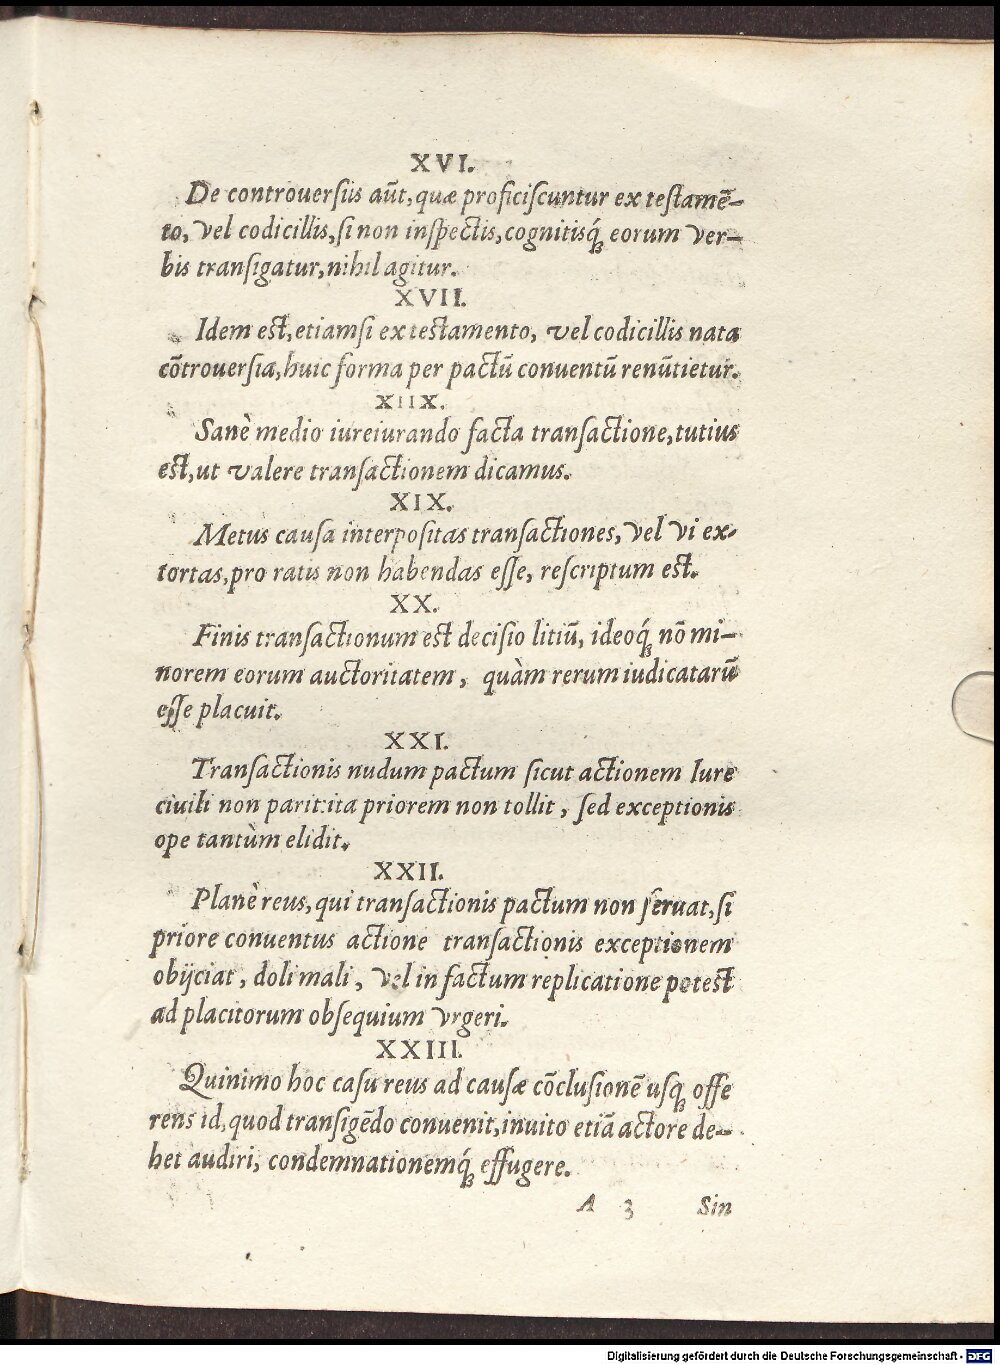 XVI.
De controuersiis aũt, quæ proficiscuntur ex testamẽ-
to, vel codicillis, si non inspectis, cognitisq́; eorum ver-
bis transigatur, nihil agitur.
XVII.
Idem est, etiamsi ex testamento, vel codicillis nata
cõtrouersia, huic forma per pactũ conuentũ renũtietur.
XIIX.
Sanè medio iureiurando facta transactione, tutius
est, ut valere transactionem dicamus.
XIX.
Metus causa interpositas transactiones, vel vi ex-
tortas, pro ratis non habendas esse, rescriptum est.
XX.
Finis transactionum est decisio litiũ, ideoq́; nõ mi-
norem eorum auctoritatem, quàm rerum iudicatarũ
esse placuit.
XXI.
Transactionis nudum pactum sicut actionem Iure
ciuili non parit: ita priorem non tollit, sed exceptionis
ope tantùm elidit.
XXII.
Planè reus, qui transactionis pactum non seruat, si
priore conuentus actione transactionis exceptionem
obijciat, doli mali, vel in factum replicatione potest
ad placitorum obsequium vrgeri.
XXIII.
Quinimo hoc casu reus ad causæ cõclusionẽ usq; offe
rens id, quod transigẽdo conuenit, inuito etiã actore de-
bet audiri, condemnationemq́; effugere.
A 3 Sin
Digitalisierung gefördert durch die Deutsche Forschungsgemeinschaft - DFG